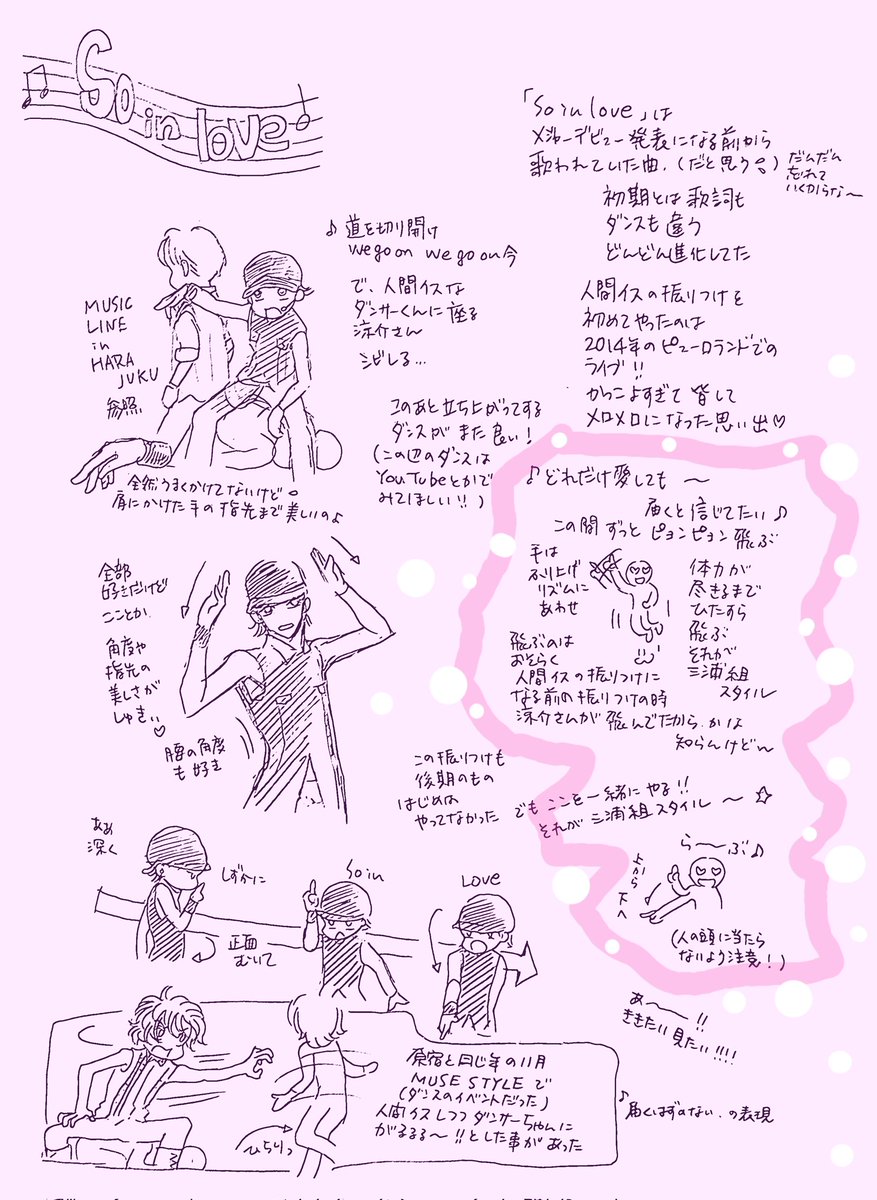 So in love
「So in love」は
メジャーデビュー発表になる前から
歌われていた曲.(だと思う)
だんだん
忘れて
いくからな〜
初期とは歌詞も
ダンスも違う
どんどん進化してた
♪道を切り開け
we go on we go on 今
で、人間イスな
ダンサーくんに座る
涼介さん
シビレる…
MUSIC
LINE
in
HARA
JUKU
参照
人間イスの振りつけを
初めてやったのは
2014年のピューロランドでの
ライブ!!
かっこよすぎて皆して
メロメロになった思い出♡
このあと立ち上がってする
ダンスがまた良い!
(この辺のダンスは
YouTubeとかで
みてほしい!!)
全然うまくかけてないけど。
肩にかけた手の指先まで美しいのよ
♪どれだけ愛しても 〜
届くと信じてたい♪
この間ずっとピョンピョン飛ぶ
手は
ふり上げ
リズムに
あわせ
体力が
尽きるまで
ひたすら
飛ぶ
それが
三浦組
スタイル
飛ぶのは
おそらく
人間イスの振りつけに
なる前の振りつけの時
涼介さんが飛んでたから.かは
知らんけどw
全部
好きだけど
こことか
角度や
指先の
美しさが
しゅきぃ♡
腰の角度
も好き
この振りつけも
後期のもの
はじめは
やってなかった
でもここを一緒にやる!!
それが三浦組スタイル〜☆
ら〜ぶ♪
上から
下へ
(人の頭に当たら
ないよう注意!)
ああ
深く
しずかに
So in
Love
正面
むいて
あ〜!!
ききたい見たい!!!!
原宿と同じ年の11月
MUSE STYLEで
(ダンスのイベントだった)
人間イスしつつダンサーちゃんに
がるるる〜!!とした事があった
ひらりっ
♪届くはずのない.の表現